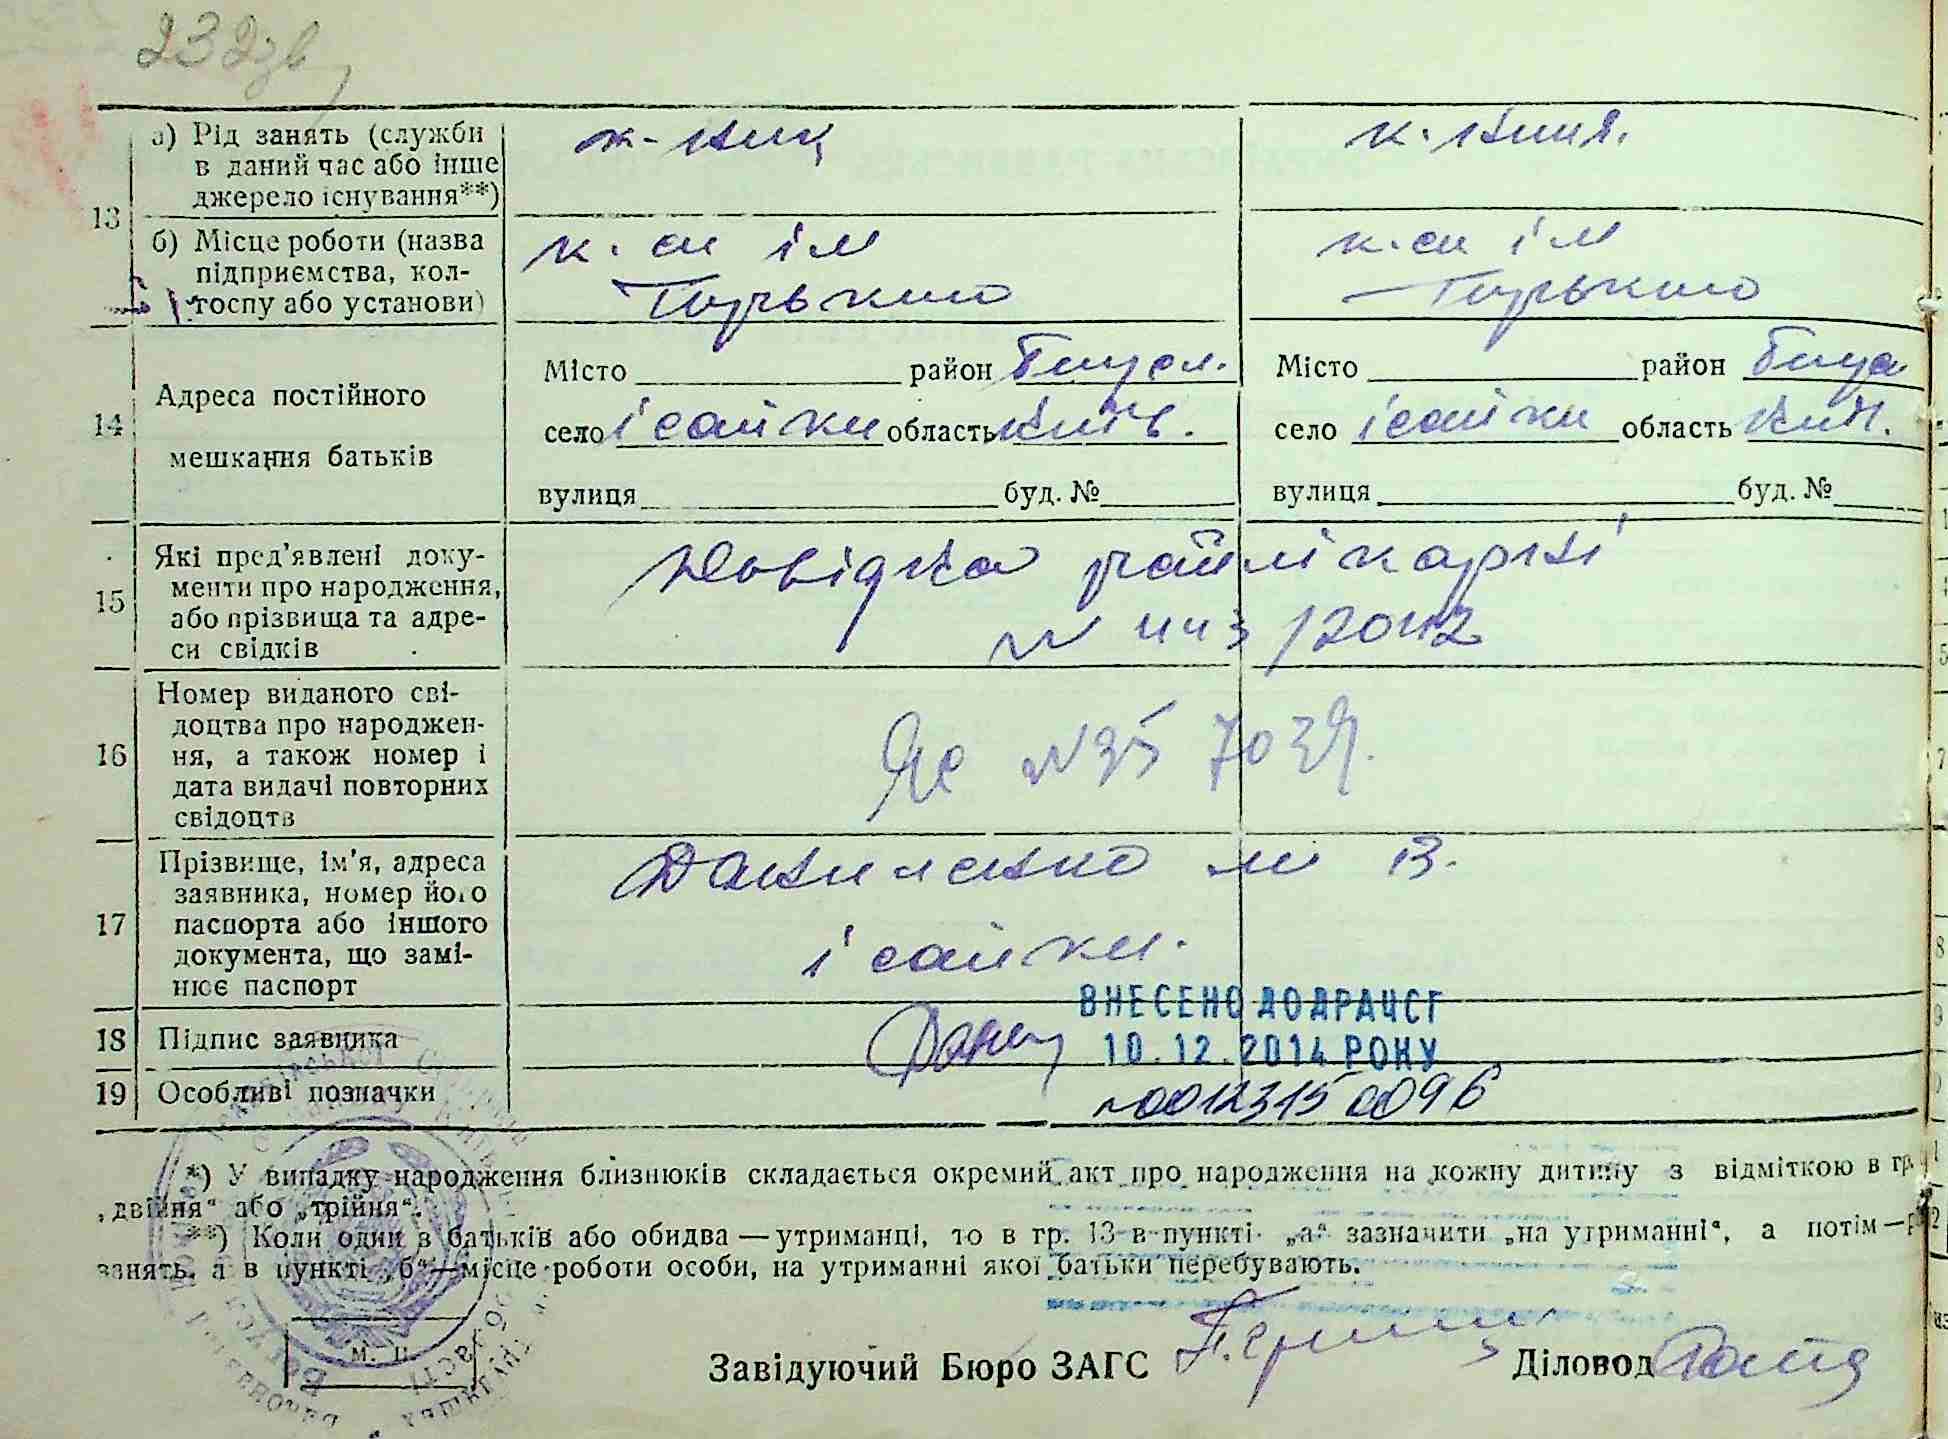 232зв
а) Рід занять (служби
в даний час або інше
джерело існування**)
к-ник
к. кния.
13
б) Місце роботи (назва
підприємства, кол-
госпу або установи)
к. сп ім
Горького
к. сп ім
Горького
14
Адреса постійного
мешкання батьків
Місто район
село Ісайки область Київ.
вулиця буд. №
Місто район
село Ісайки область Київ.
вулиця буд. №
15
Які пред'явлені доку-
менти про народження,
або прізвища та адре-
си свідків
Довідка райлікарні
16
Номер виданого сві-
доцтва про народжен-
ня, а також номер і
дата видачі повторних
свідоцтв
17
Прізвище, ім'я, адреса
заявника, номер його
паспорта або іншого
документа, що замі-
нює паспорт
Даниленко М В.
Ісайки.
ВНЕСЕНО ДО ДРАЦСГ
10.12.2014 РОКУ
18 Підпис заявника
19 Особливі позначки
№00123150096
*) У випадку народження близнюків складається окремий акт про народження на кожну дитину з відміткою в гр.
„двійня“ або „трійня“.
**) Коли один в батьків або обидва — утриманці, то в гр. 13 в пункті „а“ зазначити „на утриманні“, а потім — р
занять, а в пункті „б“ — місце роботи особи, на утриманні якої батьки перебувають.
М. П.
Завідуючий Бюро ЗАГС Діловод